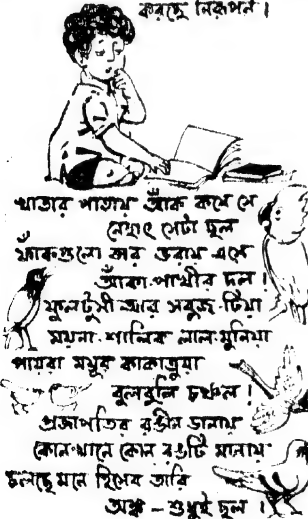 করছে নিরূপন ।
খাতার পাতায় আঁক কষে সে
নেহাৎ সেটা ছল
ফাঁকগুলো তার ভরায় এসে
আঁকা পাখীর দল !
ফুলটুসী আর সবুজ টিয়া
ময়না শালিক লাল-মুনিয়া
পায়রা ময়ূর কাকাতুয়া
বুলবুলি চঞ্চল !
প্রজাপতির রঙীন ডানায়
কোনখানে কোন রঙটি মানায়
চলছে মনে হিসেব তারি
অঙ্ক – শুধুই ছল ।